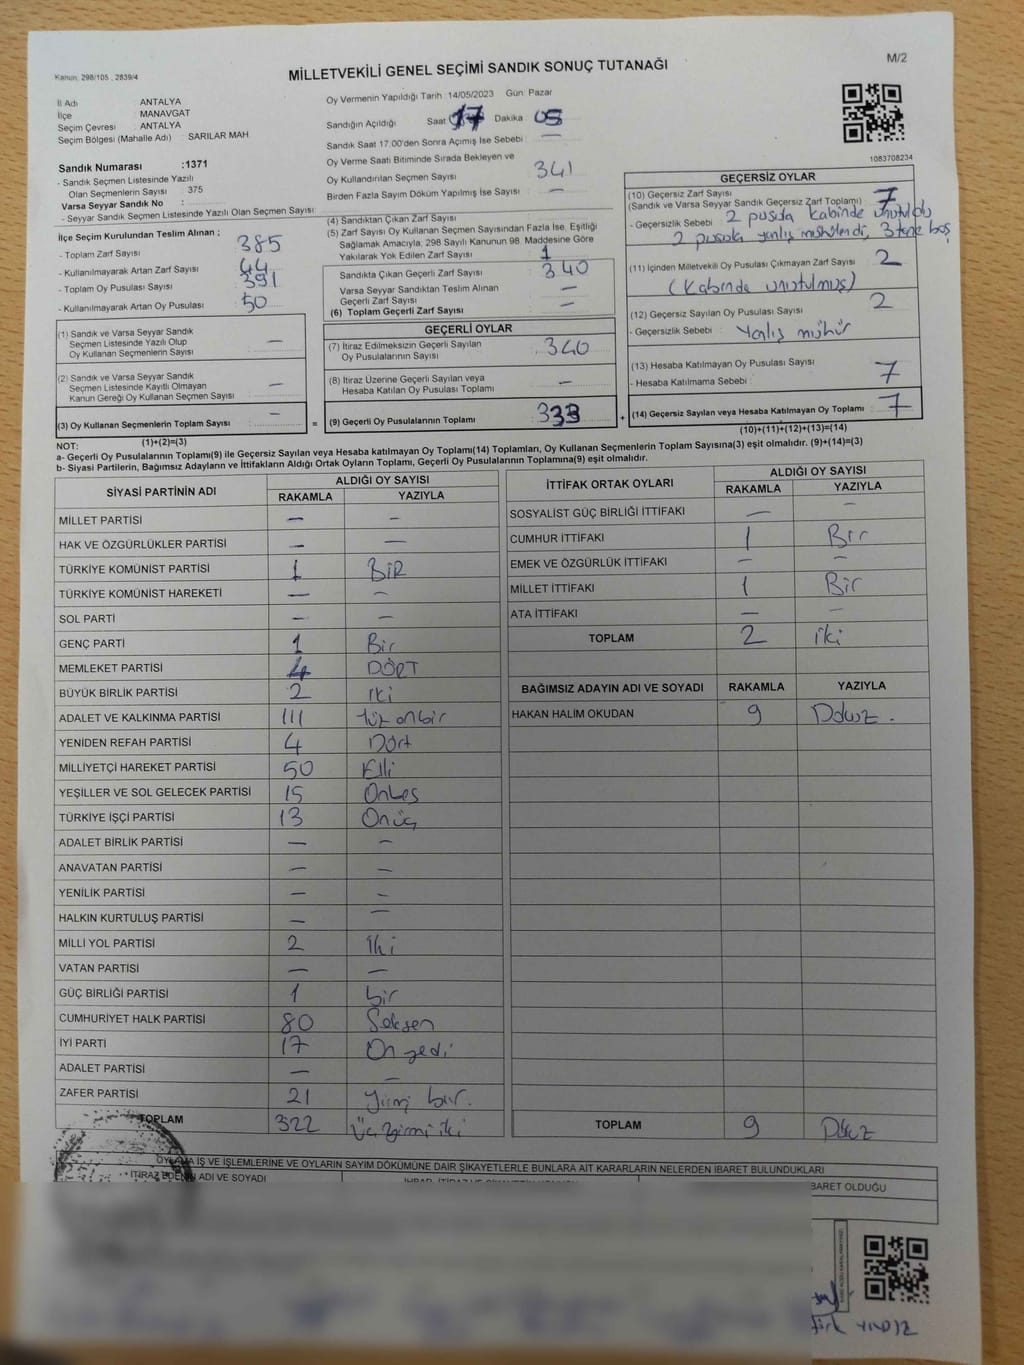 Kanun: 298/105 , 2839/4
M/2
MİLLETVEKİLİ GENEL SEÇİMİ SANDIK SONUÇ TUTANAĞI
İl Adı : ANTALYA
İlçe : MANAVGAT
Seçim Çevresi : ANTALYA
Seçim Bölgesi (Mahalle Adı) : SARILAR MAH
Sandık Numarası :1371
- Sandık Seçmen Listesinde Yazılı
Olan Seçmenlerin Sayısı : 375
Varsa Seyyar Sandık No :
- Seyyar Sandık Seçmen Listesinde Yazılı Olan Seçmen Sayısı:
Oy Vermenin Yapıldığı Tarih :14/05/2023 Gün: Pazar
Sandığın Açıldığı Saat 17 Dakika 05
Sandık Saat 17.00'den Sonra Açımış İse Sebebi : —
Oy Verme Saati Bitiminde Sırada Bekleyen ve
Oy Kullandırılan Seçmen Sayısı : 341
Birden Fazla Sayım Döküm Yapılmış İse Sayısı : —
1083708234
İlçe Seçim Kurulundan Teslim Alınan ;
- Toplam Zarf Sayısı : 385
- Kullanılmayarak Artan Zarf Sayısı : 44
- Toplam Oy Pusulası Sayısı : 391
- Kullanılmayarak Artan Oy Pusulası : 50
(1) Sandık ve Varsa Seyyar Sandık
Seçmen Listesinde Yazılı Olup
Oy Kullanan Seçmenlerin Sayısı : —
(2) Sandık ve Varsa Seyyar Sandık
Seçmen Listesinde Kayıtlı Olmayan
Kanun Gereği Oy Kullanan Seçmen Sayısı : —
(3) Oy Kullanan Seçmenlerin Toplam Sayısı : —
(1)+(2)=(3)
(4) Sandıktan Çıkan Zarf Sayısı :
(5) Zarf Sayısı Oy Kullanan Seçmen Sayısından Fazla İse, Eşitliği
Sağlamak Amacıyla, 298 Sayılı Kanunun 98. Maddesine Göre
Yakılarak Yok Edilen Zarf Sayısı : 1
Sandıkta Çıkan Geçerli Zarf Sayısı : 340
Varsa Seyyar Sandıktan Teslim Alınan
Geçerli Zarf Sayısı : —
(6) Toplam Geçerli Zarf Sayısı : —
GEÇERLİ OYLAR
(7) İtiraz Edilmeksizin Geçerli Sayılan
Oy Pusulalarının Sayısı : 340
(8) İtiraz Üzerine Geçerli Sayılan veya
Hesaba Katılan Oy Pusulası Toplamı : —
= (9) Geçerli Oy Pusulalarının Toplamı : 333 +
GEÇERSİZ OYLAR
(10) Geçersiz Zarf Sayısı
(Sandık ve Varsa Seyyar Sandık Geçersiz Zarf Toplamı) : 7
- Geçersizlik Sebebi : 2 pusula kabinde unutuldu
2 pusula yanlış mühürlendi, 3 tane boş
(11) İçinden Milletvekili Oy Pusulası Çıkmayan Zarf Sayısı : 2
(Kabinde unutulmuş)
(12) Geçersiz Sayılan Oy Pusulası Sayısı : 2
- Geçersizlik Sebebi : Yanlış mühür
(13) Hesaba Katılmayan Oy Pusulası Sayısı : 7
- Hesaba Katılmama Sebebi :
(14) Geçersiz Sayılan veya Hesaba Katılmayan Oy Toplamı : 7
(10)+(11)+(12)+(13)=(14)
NOT:
a- Geçerli Oy Pusulalarının Toplamı(9) ile Geçersiz Sayılan veya Hesaba katılmayan Oy Toplamı(14) Toplamları, Oy Kullanan Seçmenlerin Toplam Sayısına(3) eşit olmalıdır. (9)+(14)=(3)
b- Siyasi Partilerin, Bağımsız Adayların ve İttifakların Aldığı Ortak Oyların Toplamı, Geçerli Oy Pusulalarının Toplamına(9) eşit olmalıdır.
SİYASİ PARTİNİN ADI ALDIĞI OY SAYISI
RAKAMLA YAZIYLA
MİLLET PARTİSİ — —
HAK VE ÖZGÜRLÜKLER PARTİSİ — —
TÜRKİYE KOMÜNİST PARTİSİ 1 BİR
TÜRKİYE KOMÜNİST HAREKETİ — —
SOL PARTİ — —
GENÇ PARTİ 1 Bir
MEMLEKET PARTİSİ 4 DÖRT
BÜYÜK BİRLİK PARTİSİ 2 iki
ADALET VE KALKINMA PARTİSİ 111 Yüz onbir
YENİDEN REFAH PARTİSİ 4 Dört
MİLLİYETÇİ HAREKET PARTİSİ 50 Elli
YEŞİLLER VE SOL GELECEK PARTİSİ 15 Onbeş
TÜRKİYE İŞÇİ PARTİSİ 13 Onüç
ADALET BİRLİK PARTİSİ — —
ANAVATAN PARTİSİ — —
YENİLİK PARTİSİ — —
HALKIN KURTULUŞ PARTİSİ — —
MİLLİ YOL PARTİSİ 2 İki
VATAN PARTİSİ — —
GÜÇ BİRLİĞİ PARTİSİ 1 bir
CUMHURİYET HALK PARTİSİ 80 Seksen
İYİ PARTİ 17 On yedi
ADALET PARTİSİ — —
ZAFER PARTİSİ 21 Yirmi bir.
TOPLAM 322 Üç yirmi iki
İTTİFAK ORTAK OYLARI ALDIĞI OY SAYISI
RAKAMLA YAZIYLA
SOSYALİST GÜÇ BİRLİĞİ İTTİFAKI — —
CUMHUR İTTİFAKI 1 Bir
EMEK VE ÖZGÜRLÜK İTTİFAKI — —
MİLLET İTTİFAKI 1 Bir
ATA İTTİFAKI — —
TOPLAM 2 iki
BAĞIMSIZ ADAYIN ADI VE SOYADI RAKAMLA YAZIYLA
HAKAN HALİM OKUDAN 9 Dokuz.
TOPLAM 9 Dokuz
OYLAMA İŞ VE İŞLEMLERİNE VE OYLARIN SAYIM DÖKÜMÜNE DAİR ŞİKAYETLERLE BUNLARA AİT KARARLARIN NELERDEN İBARET BULUNDUKLARI
İTİRAZ EDENİN ADI VE SOYADI
BARET OLDUĞU